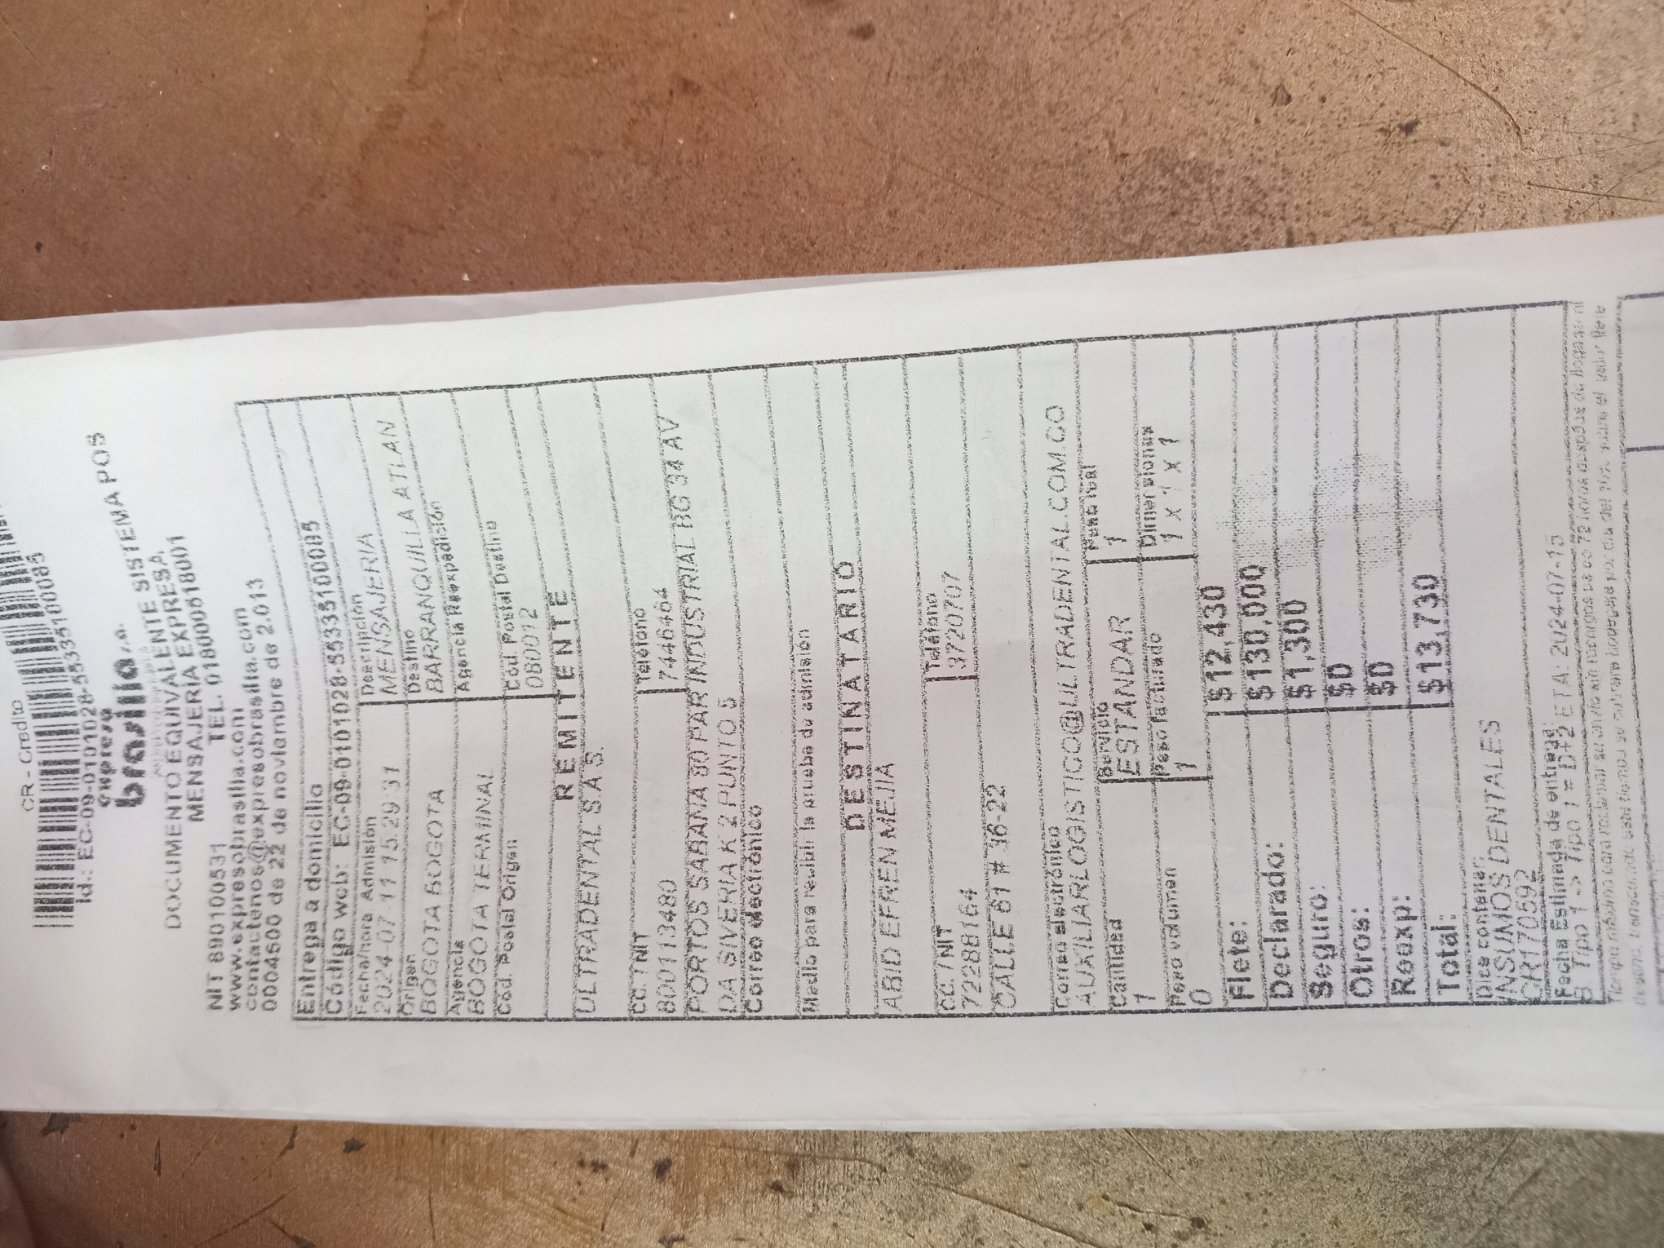 CR - Credito
Id.: EC-09-0101028-53335100085
expreso
brasilia s.a.
DOCUMENTO EQUIVALENTE SISTEMA POS
MENSAJERIA EXPRESA
TEL. 018000518001
NIT 890100531
www.expresobrasilia.com
contactenos@expresobrasilia.com
0004500 de 22 de noviembre de 2.013
Entrega a domicilio
Código web: EC-09-0101028-53335100085
Fecha/hora Admisión Descripción
2024-07-11 15:29:31 MENSAJERIA
Origen Destino
BOGOTA BOGOTA BARRANQUILLA ATLAN
Agencia Agencia Reexpedición
BOGOTA TERMINAL
Cód. Postal Origen Cód. Postal Destino
080012
REMITENTE
ULTRADENTAL S.A.S.
CC. / NIT Teléfono
800113480 7446464
PORTOS SABANA 80 PAR INDUSTRIAL BG 34 AV
LA SIVERIA K 2 PUNTO 5
Correo electrónico
Medio para recibir la prueba de admisión
DESTINATARIO
ABID EFREN MEJIA
CC. / NIT Teléfono
72288164 3720707
CALLE 61 # 36-22
Correo electrónico
AUXILIARLOGISTICO@ULTRADENTAL.COM.CO
Cantidad Servicio Peso real
1 ESTANDAR 1
Peso volumen Peso facturado Dimensiones
0 1 1 x 1 x 1
Flete: $12,430
Declarado: $130,000
Seguro: $1,300
Otros: $0
Reexp: $0
Total: $13,730
Dice contener:
INSUMOS DENTALES
CR170592
Fecha Estimada de entrega:
Tipo 1 = D+2 ETA: 2024-07-15